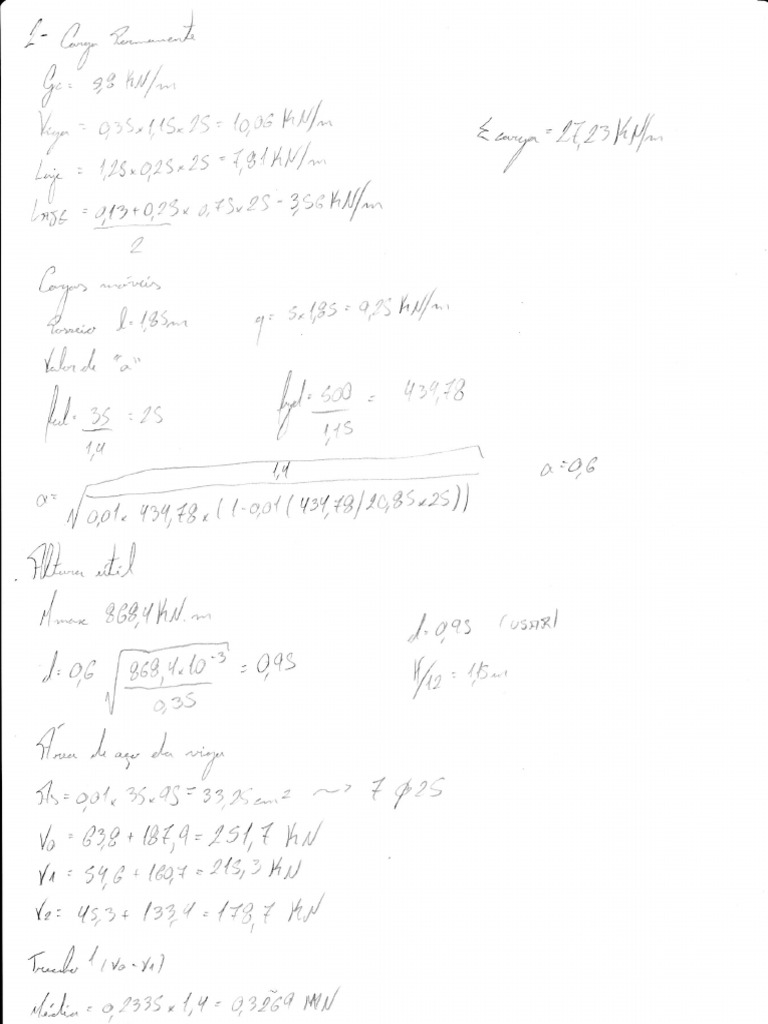 1- Carga Permanente
Gc= 5,8 KN/m
Viga = 0,35x1,15x25= 10,06 KN/m
Σ carga = 27,23 KN/m
Laje = 1,25x0,25x25 = 7,81 KN/m
LAJE = 0,13+0,25x0,75x25 = 3,56 KN/m
2
Cargas móveis
Passeio l=1,85m q= 5x1,85= 9,25 KN/m
Valor de "a"
fcd= 35 = 25 fyd= 500 = 434,78
1,4 1,15
a= √ 1,4 a=0,6
0,01x 434,78x(1-0,01(434,78/20,85x25))
Altura útil
Mmax 868,4 KN.m
d=0,95 (USAR)
d= 0,6 √ 868,4x10⁻³ = 0,95
0,35
H/12 = 1,15m
Área de aço da viga
As= 0,01x 35x95= 33,25cm² ~> 7 ϕ25
V0 = 63,8 + 187,9 = 251,7 KN
V1 = 54,6 + 160,7 = 215,3 KN
V2= 45,3+ 133,4 = 178,7 KN
Trecho 1 (V0-V1)
Média = 0,2335x1,4 = 0,3269 MN